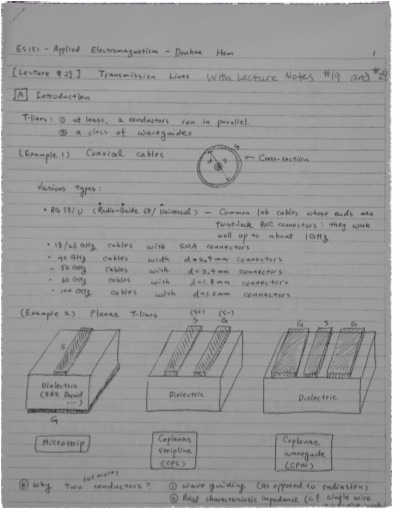 ES151 - Applied Electromagnetism - Donhee Ham
1
[Lecture #29] Transmission Lines With Lecture Notes #19 and #24
A Introduction
T-lines: ① at least, 2 conductors run in parallel.
② a class of waveguides
(Example 1) Coaxial cables
G
d
S
← Cross-section
Various types:
• RG 58/U (Radio-Guide 58/Universal) — Common lab cables whose ends are
twist-lock BNC connectors: they work
well up to about 1GHz
• 18/26 GHz cables with SMA connectors
• 40 GHz cables with d=2.9mm connectors
• 50 GHz cables with d=2.4mm connectors
• 60 GHz cables with d=1.8mm connectors
• 100 GHz cables with d=1.0mm connectors
(Example 2) Planar T-lines
(S+) (S-)
S G
G S G
S
Dielectric
Dielectric
Dielectric
G
Microstrip
Coplanar
stripline
(CPS)
Coplanar
waveguide
(CPW)
(or more)
Why two conductors? ① wave guiding (as opposed to radiation)
② Real characteristic impedance (c.f. single wire